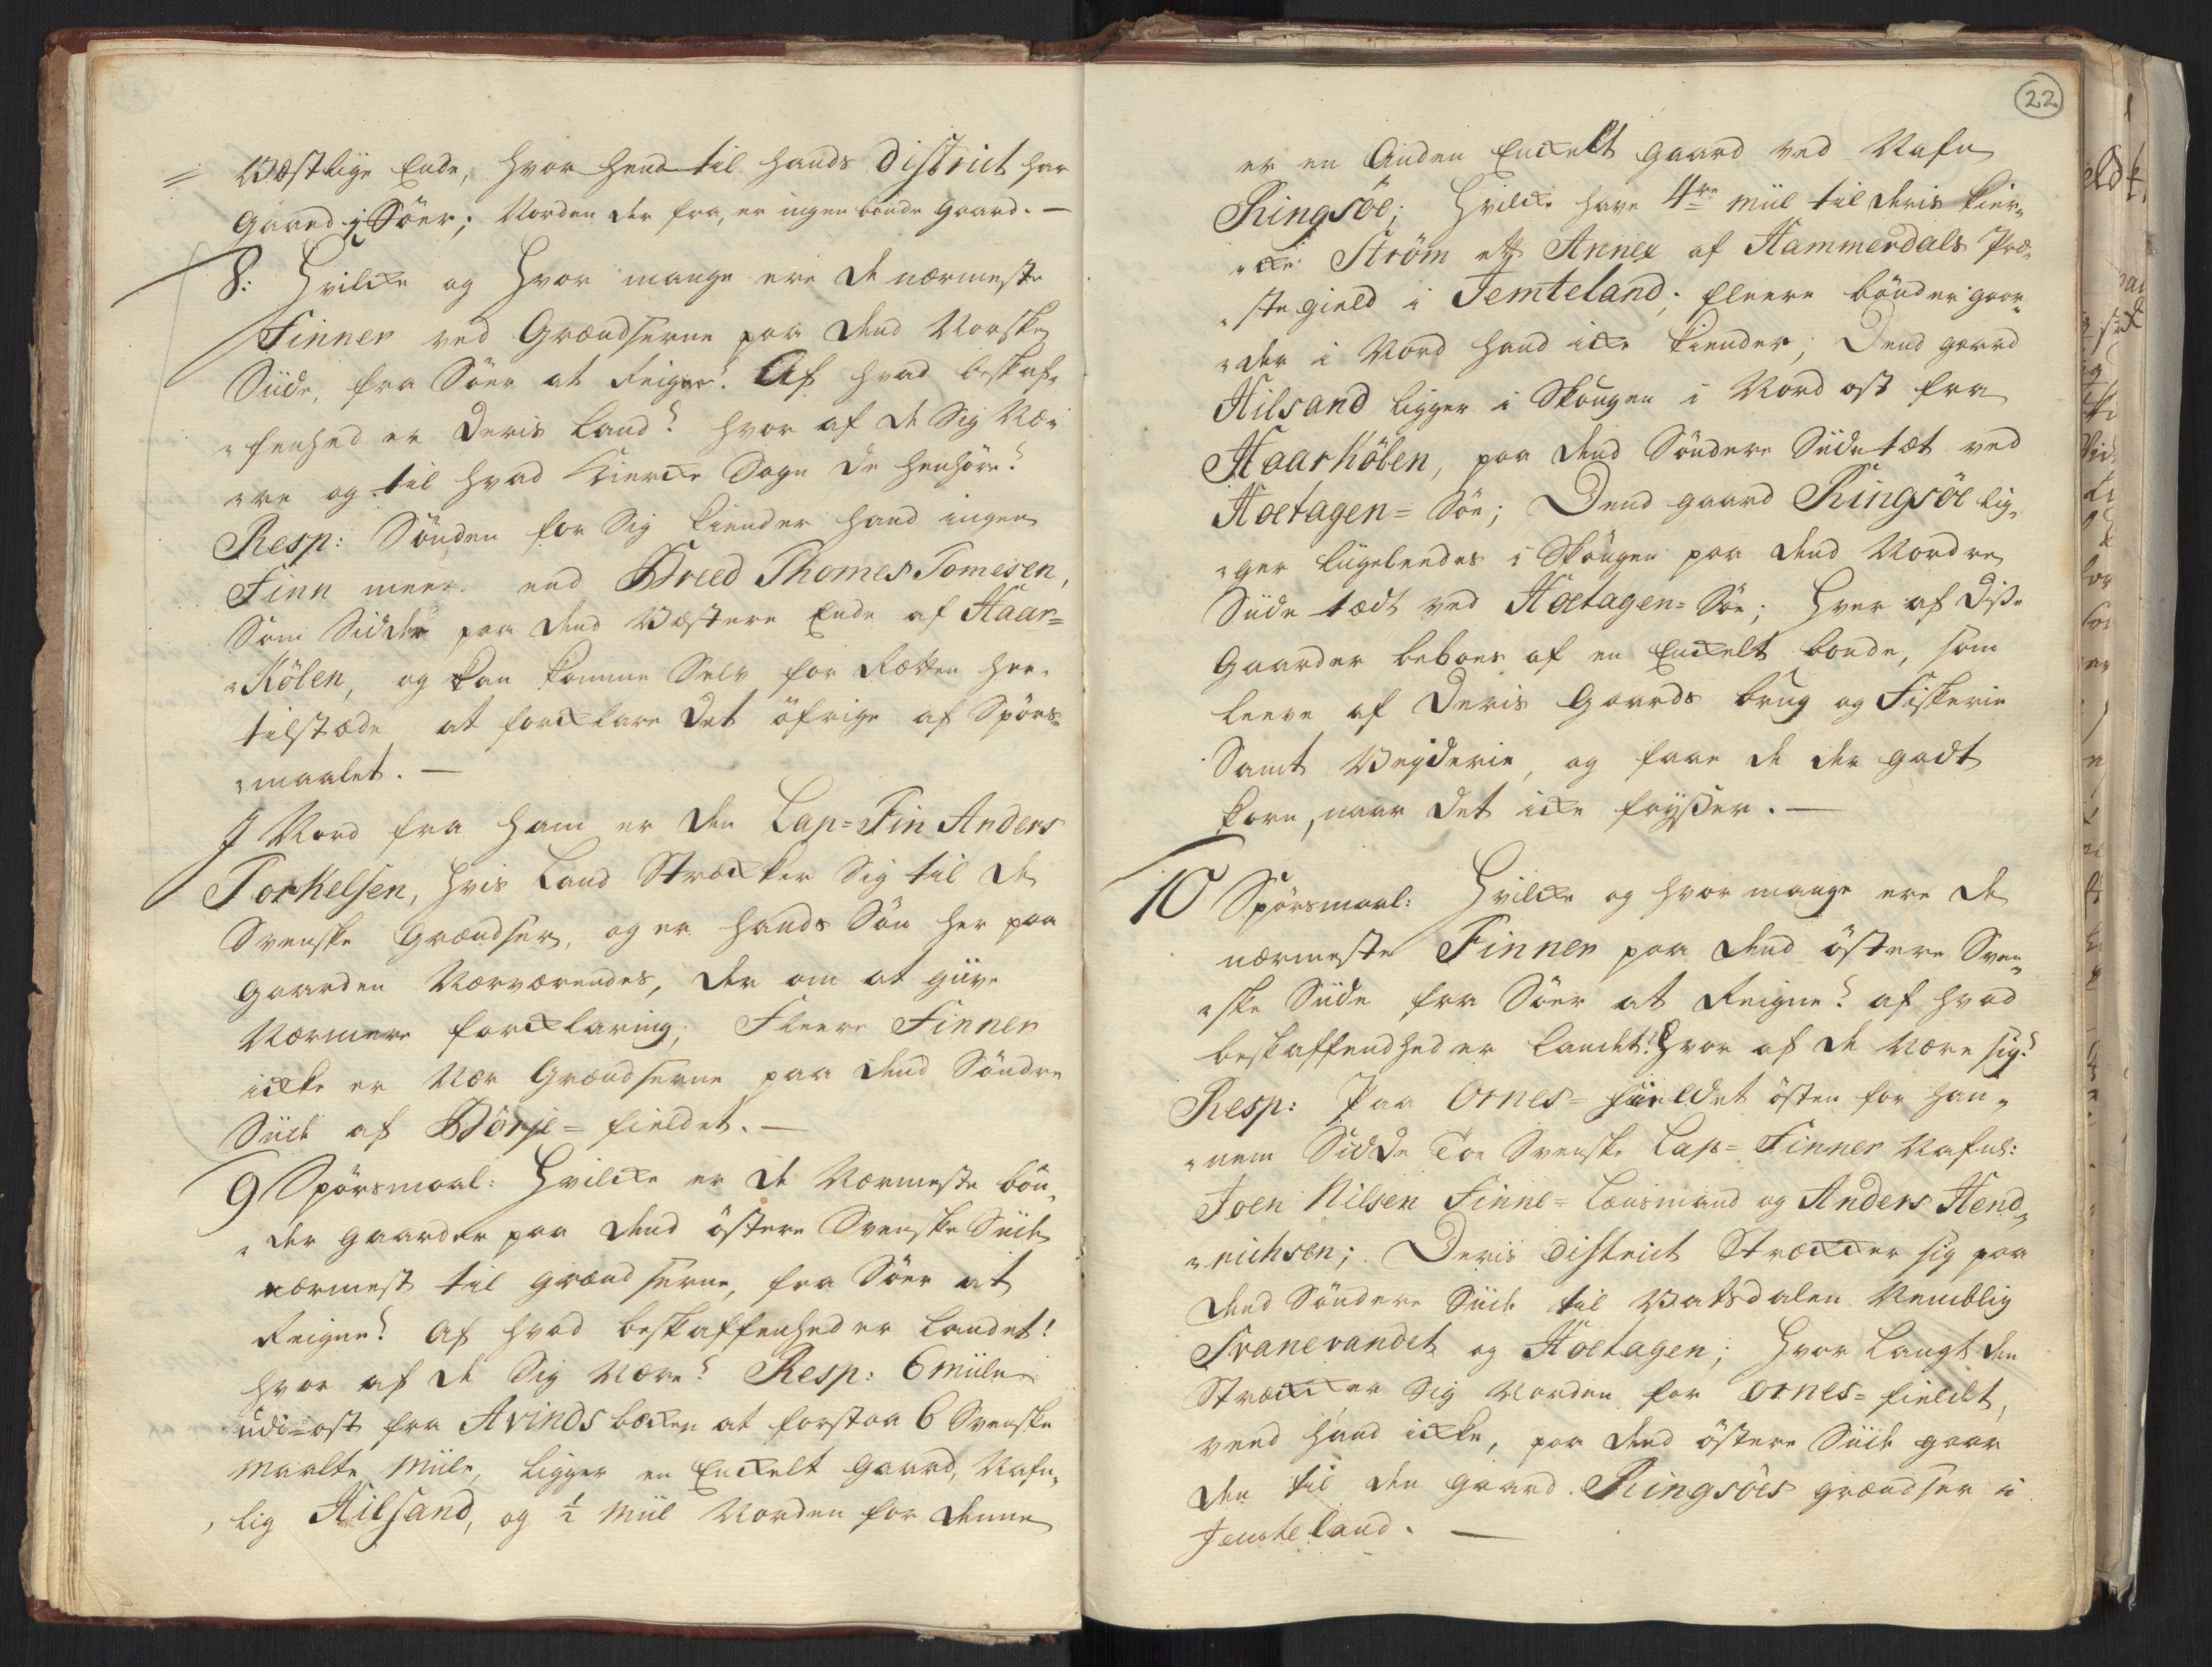 = Wæstlige Ende, hvor hen til hands District har
Gaard i Söer; Norden der fra, er ingen bonde Gaard. —
8: Hvilcke og Hvor mange ere de nærmeste
Finner ved Grændserne paa dend Norske
Siide, fra Söer at Reigne? Af hvad beskaf„
„fenhed er Deris Land? hvor af de Sig Næ„
„re og til hvad Kiercke Sogn de henhöre?
Resp: Sönden for Sig kiender hand ingen
Finn meer end Breed Thomes Tomesen,
Som Sidder paa dend Wæstere Ende af Haar=
„Kölen, og kan komme Selv for Rætten her„
tilstæde at forcklare det öfrige af Spörs„
„maalet. —
J Nord fra ham er den Lap=Fin Anders
Torkelsen, hvis Land Stræcker Sig til de
Svenske Grændser, og er hands Sön her paa
Gaarden Nærværendes, der om at giive
Nærmere forcklaring; Fleere Finner
icke er Nær Grændserne paa dend Söndre
Siide af Börje=fieldet. —
9 Spörsmaal: Hvilcke er de Nærmeste bön„
„der gaarder paa dend östere Svenske Siide
nærmest til grændserne, fra Söer at
Reigne? Af hvad beskaffenhed er Landet?
hvor af de Sig Nære? Resp: 6 miile
udi=ost fra Avindsbæcken at forstaa 6 Svenske
Maalte Miile, ligger en Enckelt gaard, Nafn„
„lig Hilsand, og ½ Miil Norden for denne
22
er en Anden Enckelt gaard ved Nafn
Ringsöe; Hvilcke have 4re Miil til deris kier„
„cke Ström et Annex af Hammerdals Præ„
„stegield i Jemteland; fleere bönder gaar„
„der i Nord hand icke kiender; Dend gaard
Hilsand ligger i Skougen i Nord ost fra
Haarkölen, paa dend Söndere Siide tæt ved
Hoetagen=Söe; Dend gaard Ringsöe lig„
„ger liigeleedes i Skougen paa dend Nordre
Siide tædt ved Hoetagen=Söe; Hver af disse
Gaarder beboes af en Enckelt bonde, som
leeve af Deris Gaards brug og Fiskerie
Samt Veyderie, og faae de der godt
korn, naar det icke frysser. —
10 Spörsmaal: Hvilcke og hvor mange ere de
nærmeste Finner paa dend östere Sven„
„ske Siide fra Söer at Reigne? af hvad
beskaffendhed er Landet? Hvor af de Nære sig?
Resp: Paa Ornes=fieldet östen for han„
„nem Sidde Toe Svenske Lap=Finner Nafnl:
Joen Nilsen Finne=Lænsmand og Anders Hend„
„richsen; Deris District Stræcker sig paa
dend Söndere Siide til Vatsdalen Nemblig
Svanevandet og Hoetagen; Hvor Langt den
Stræcker Sig Norden for Ornes=fieldet,
veed hand icke, paa dend östere Siide gaar
den til den gaard Ringsöes grændser i
Jemteland. —